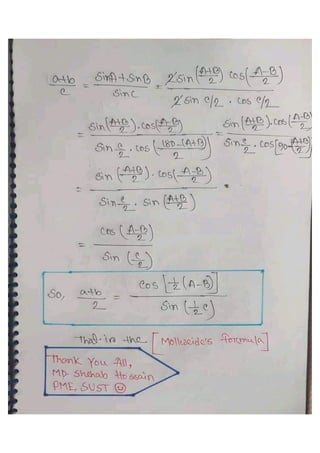 a+b/c = sinA+sinB/sinC = 2sin(A+B/2) cos(A-B/2)/2sin c/2 . cos c/2
= sin(A+B/2).cos(A-B/2)/sin c/2 . cos(180-(A+B)/2) = sin(A+B/2).cos(A-B/2)/sin c/2 . cos[90-A+B/2]
= sin(A+B/2) . cos(A-B/2)/sin c/2 . sin(A+B/2)
= cos(A-B/2)/sin(c/2)
So, a+b/2 = cos[1/2(A-B)]/sin(1/2c)
That is the [Mollweide's formula]
Thank You All,
MD. Shehab Hossain
PME, SUST ☺